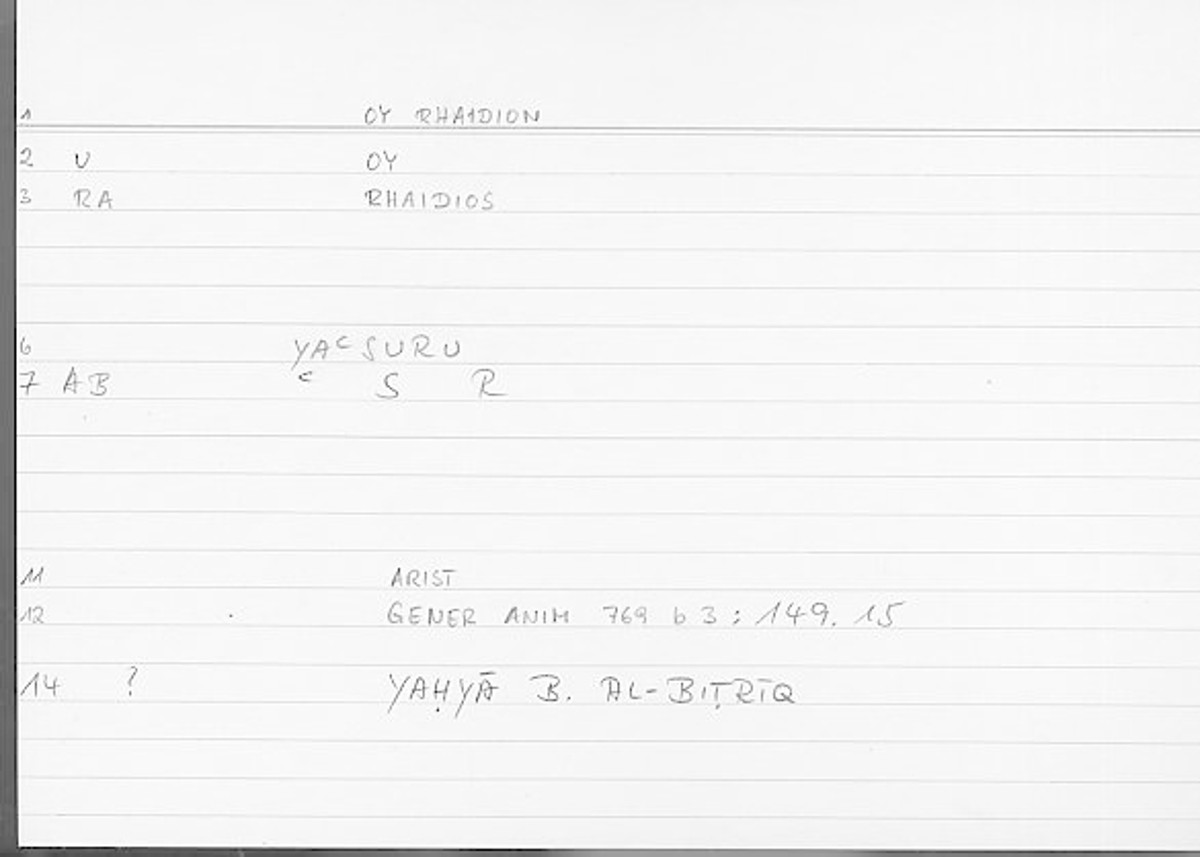 1 OY RHAIDION
2 U OY
3 RA RHAIDIOS
6 YAʿSURU
7 AB ʿ S R
11 ARIST
12 GENER ANIM 769 b 3 : 149. 15
14 ? YAḤYĀ B. AL-BIṬRĪQ